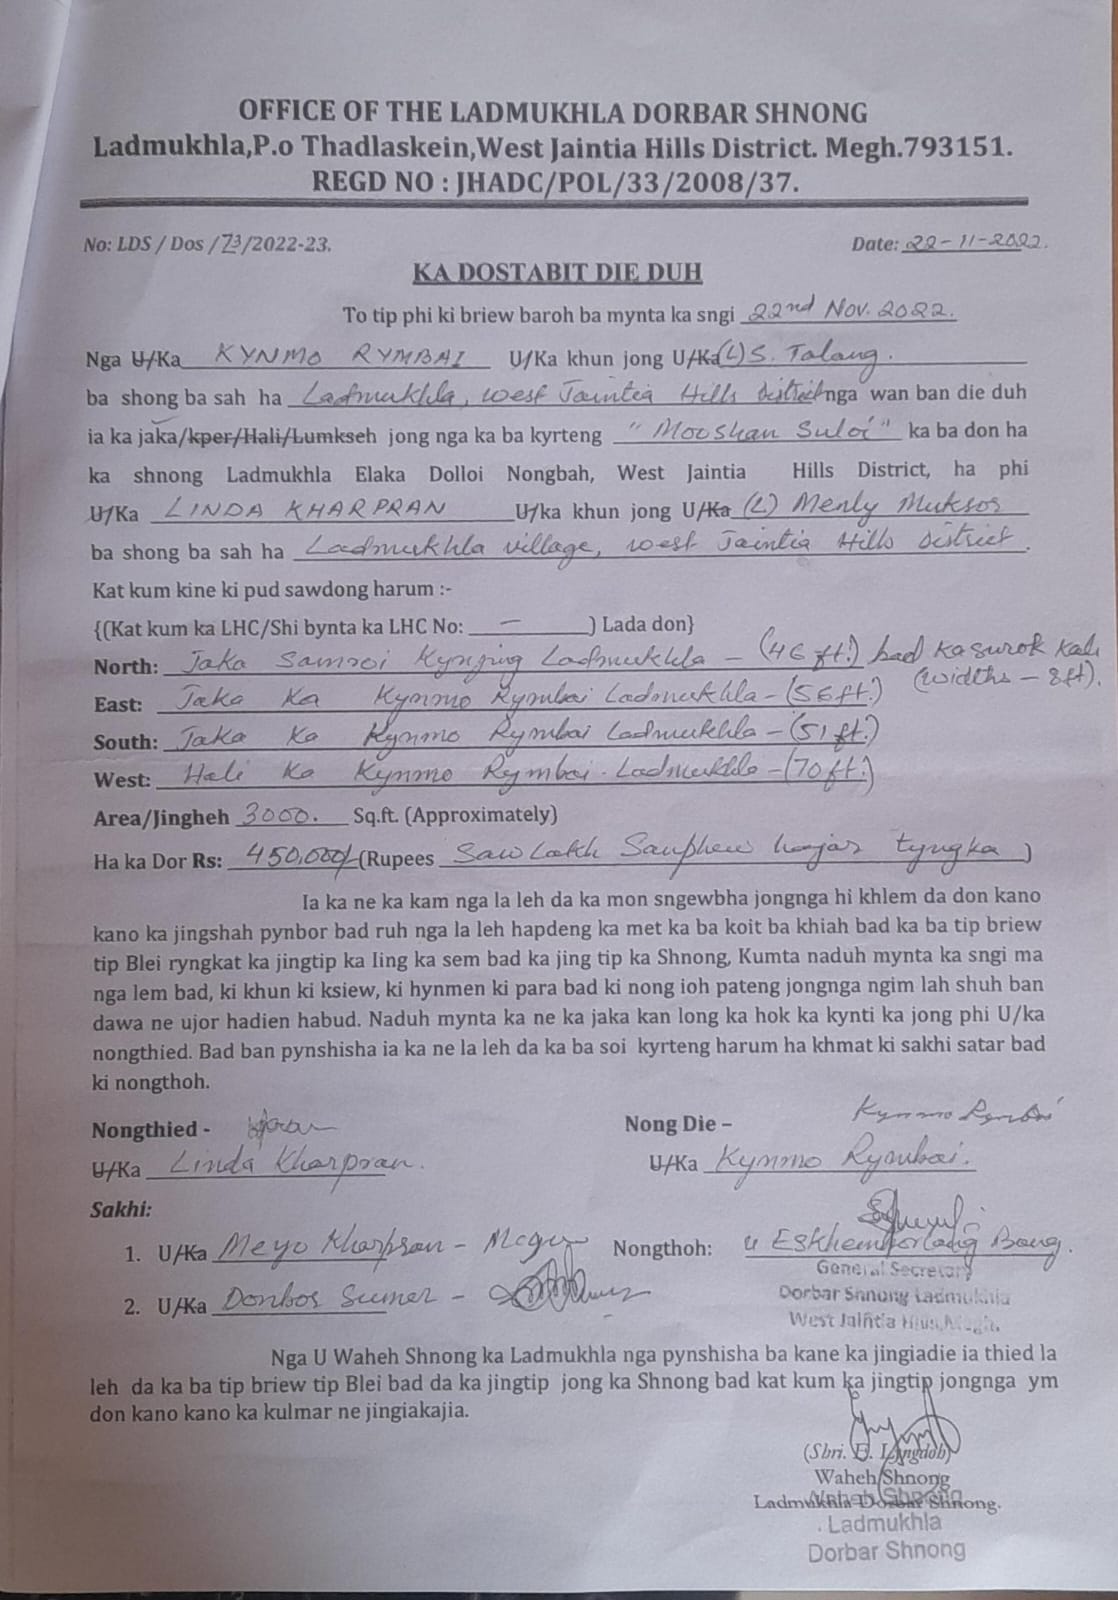 OFFICE OF THE LADMUKHLA DORBAR SHNONG
Ladmukhla,P.o Thadlaskein,West Jaintia Hills District. Megh.793151.
REGD NO : JHADC/POL/33/2008/37.
No: LDS / Dos /73/2022-23. Date: 22-11-2022.
KA DOSTABIT DIE DUH
To tip phi ki briew baroh ba mynta ka sngi 22nd Nov. 2022.
Nga U/Ka KYNMO RYMBAI U/Ka khun jong U/Ka (L) S. Talang.
ba shong ba sah ha Ladmukhla, West Jaintia Hills District nga wan ban die duh
ia ka jaka/kper/Hali/Lumkseh jong nga ka ba kyrteng "Mooshan Suloi" ka ba don ha
ka shnong Ladmukhla Elaka Dolloi Nongbah, West Jaintia Hills District, ha phi
U/Ka LINDA KHARPRAN U/ka khun jong U/Ka (L) Menly Muksor
ba shong ba sah ha Ladmukhla village, West Jaintia Hills District.
Kat kum kine ki pud sawdong harum :-
{(Kat kum ka LHC/Shi bynta ka LHC No: — ) Lada don}
North: Jaka Samroi Kynjing Ladmukhla - (46 ft.) bad ka surok kali
(widths - 8ft).
East: Jaka Ka Kynmo Rymbai Ladmukhla - (56ft.)
South: Jaka Ka Kynmo Rymbai Ladmukhla - (51 ft.)
West: Hali Ka Kynmo Rymbai. Ladmukhla - (70ft.)
Area/Jingheh 3000. Sq.ft. (Approximately)
Ha ka Dor Rs: 450,000/- (Rupees Saw Lakh Sanphew hajar tyngka )
Ia ka ne ka kam nga la leh da ka mon sngewbha jongnga hi khlem da don kano
kano ka jingshah pynbor bad ruh nga la leh hapdeng ka met ka ba koit ba khiah bad ka ba tip briew
tip Blei ryngkat ka jingtip ka Iing ka sem bad ka jing tip ka Shnong, Kumta naduh mynta ka sngi ma
nga lem bad, ki khun ki ksiew, ki hynmen ki para bad ki nong ioh pateng jongnga ngim lah shuh ban
dawa ne ujor hadien habud. Naduh mynta ka ne ka jaka kan long ka hok ka kynti ka jong phi U/ka
nongthied. Bad ban pynshisha ia ka ne la leh da ka ba soi kyrteng harum ha khmat ki sakhi satar bad
ki nongthoh.
Nongthied - Nong Die – Kynmo Rymbai
U/Ka Linda Kharpran. U/Ka Kynmo Rymbai.
Sakhi:
1. U/Ka Meyo Kharpran - Nongthoh: U Eskhemborlang Bang.
General Secretary
2. U/Ka Donbos Sumer -
Dorbar Shnong Ladmukhla
West Jaintia Hills, Megh.
Nga U Waheh Shnong ka Ladmukhla nga pynshisha ba kane ka jingiadie ia thied la
leh da ka ba tip briew tip Blei bad da ka jingtip jong ka Shnong bad kat kum ka jingtip jongnga ym
don kano kano ka kulmar ne jingiakajia.
(Shri. E. Lyngdoh)
Waheh Shnong
Ladmukhla Dorbar Shnong.
Waheh Shnong
Ladmukhla
Dorbar Shnong